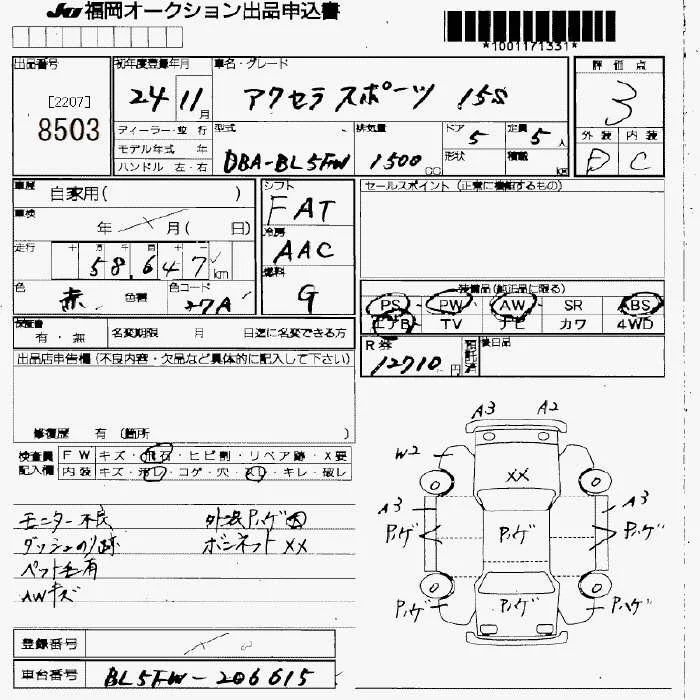 JU福岡オークション出品申込書
*1001171331*
出品番号
[2207]
8503
初年度登録年月
24 11月
車名・グレード
アクセラスポーツ 15S
評価点
3
外装 内装
D C
ディーラー・並行
モデル年式 年
ハンドル 左・右
型式
DBA-BL5FW
排気量
1500 CC
ドア 5
形状
定員 5人
積載 kg
車歴 自家用( )
車検 年 月( 日)
走行 十 万 千 百 十 一
58,647 km
色 赤 色替 色コード 27A
シフト
FAT
冷房
AAC
燃料
G
セールスポイント(正常に機能するもの)
装備品(純正品に限る)
PS PW AW SR ABS
エアB TV ナビ カワ 4WD
検査書
有・無
名変期限 月 日迄に名変できる方
R券
12710円
預託済
後日品
出品店申告欄(不良内容・欠品など具体的に記入して下さい)
修復歴 有 (箇所 )
検査員記入欄
FW キズ・飛石・ヒビ割・リペア跡・X要
内装 キズ・汚レ・コゲ・穴・スレ・キレ・破レ
モニター不良
外装Pハゲ大
ダッシュのり跡
ボンネットXX
ペット毛有
AWキズ
A3 A2
W2
XX
A3 A3
Pハゲ Pハゲ Pハゲ
Pハゲ Pハゲ Pハゲ
登録番号
車台番号
BL5FW-206615